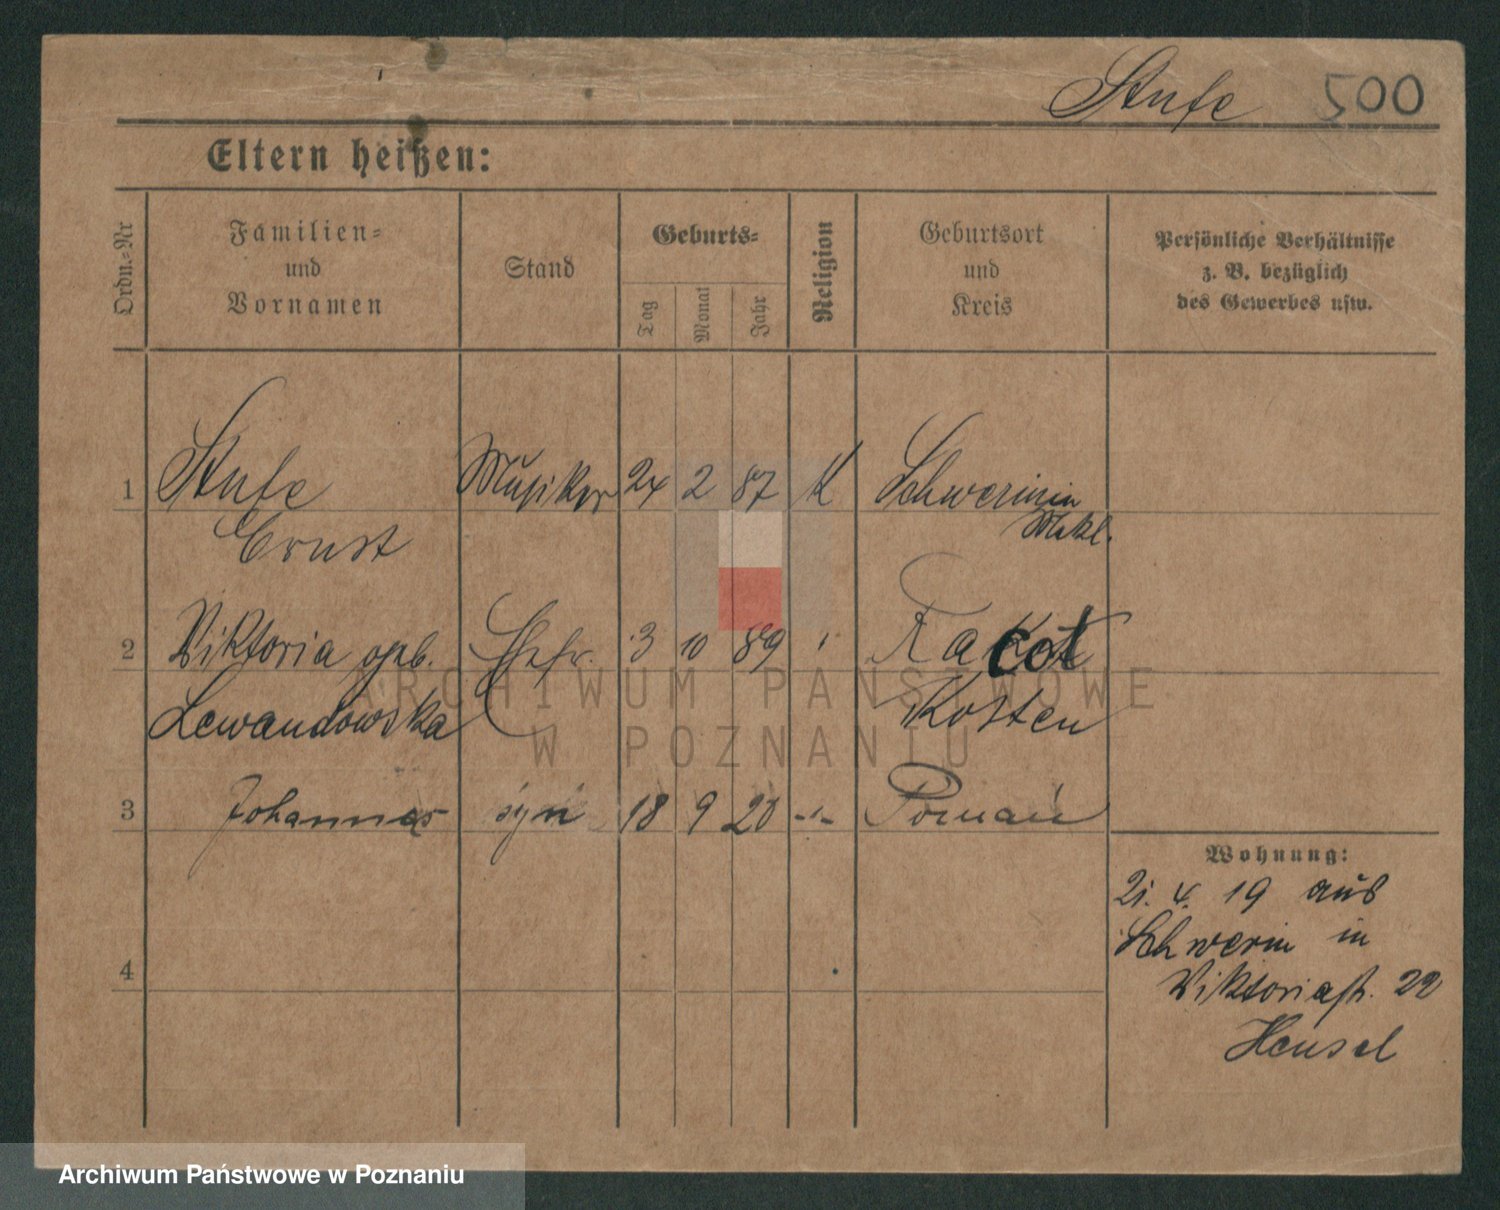 Stufe 500
Eltern heißen:
Ordn.-Nr
Familien-
und
Vornamen
Stand
Geburts-
Tag
Monat
Jahr
Religion
Geburtsort
und
Kreis
Persönliche Verhältnisse
z. B. bezüglich
des Gewerbes usw.
1 Stufe Musiker 24 2 87 K Schwerin in
Ernst Mekl.
2 Viktoria geb. Ehefr. 3 10 89 Racot
Lewandowska Kosten
3 Johannes syn 18 9 20 -"- Poznań
4
Wohnung:
21. 4. 19 aus
Schwerin in
Viktoriastr. 22
Hensel
ARCHIWUM PAŃSTWOWE
W POZNANIU
Archiwum Państwowe w Poznaniu